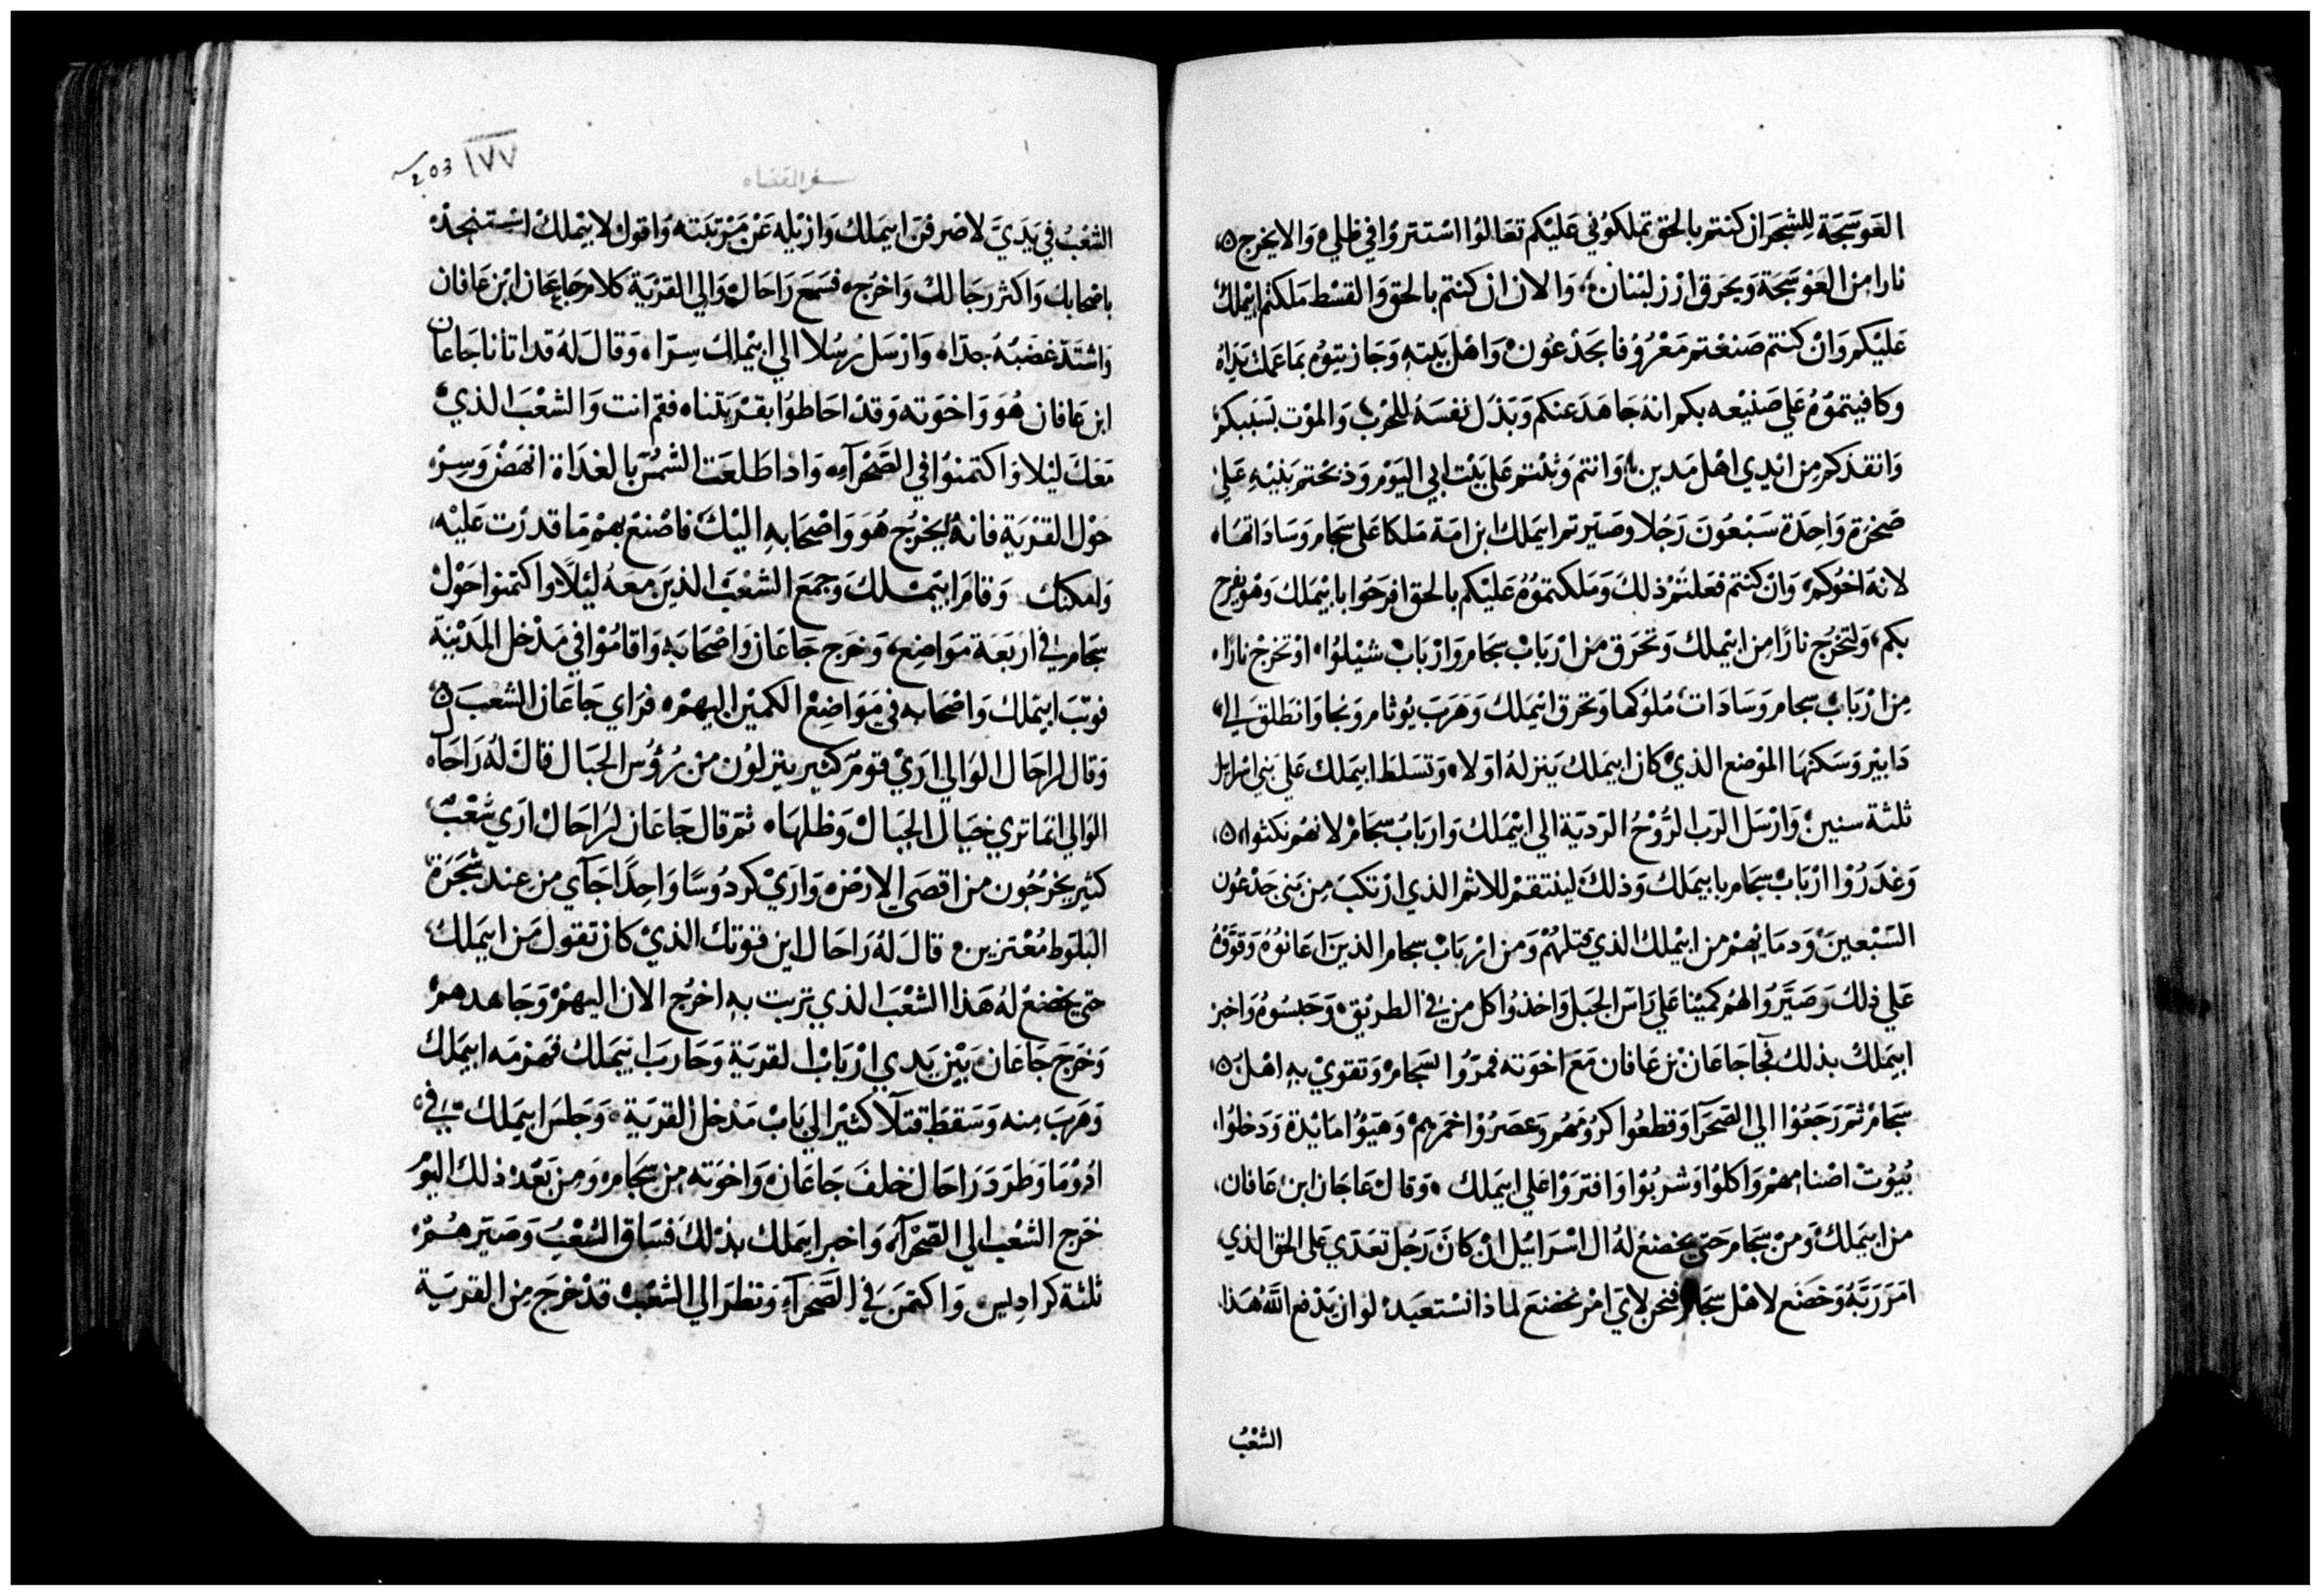 العوسجة للشجر ان كنتم بالحق تملكوني عليكم تعالوا استتروا في ظلي والا يخرج
نارا من العوسجة ويحرق ارز لبنان والان ان كنتم بالحق والقسط ملكتم ابيملك
عليكم وان كنتم صنعتم معروفا بجدعون واهل بيته وجازيتوه بما عملت يداه
وكافيتموه على صنيعه بكم انه جاهد عنكم وبذل نفسه للحرب والموت بسببكم
وانقذكم من ايدي اهل مدين وانتم وثبتم على بيت ابي اليوم وذبحتم بنيه على
صخرة واحدة سبعون رجلا وصيرتم ابيملك ابن امة ملكا على سجام وساداتها
لانه اخوكم وان كنتم فعلتم ذلك وملكتموه عليكم بالحق افرحوا بابيملك وهو يفرح
بكم ولتخرج نارا من ابيملك وتحرق من ارباب سجام وارباب شيلوا او تخرج نارا
من ارباب سجام وسادات ملوكها وتحرق ابيملك وهرب يوثام ونجا وانطلق الي
دابير وسكنها الموضع الذي كان ابيملك ينزله اولا وتسلط ابيملك على بني اسرايل
ثلثة سنين وارسل الرب الروح الردية الي ابيملك وارباب سجام لانهم نكثوا
وغدروا ارباب سجام بابيملك وذلك لينتقم للاثم الذي ارتكب من بني جدعون
السبعين ودمايهم من ابيملك الذي قتلهم ومن ارباب سجام الذين اعانوه وقووه
علي ذلك وصيروا لهم كمينا علي راس الجبل واخذوا كل من في الطريق وحبسوه واخبر
ابيملك بذلك فجا جاعان بن عافان مع اخوته فمروا لسجام وتقوي به اهل
سجام ثم رجعوا الي الصحرا وقطعوا كرومهم وعصروا خمرهم وهيؤا مايدة ودخلوا
بيوت اصنامهم واكلوا وشربوا وافتروا على ابيملك وقال عاجان ابن عافان
من ابيملك ومن سجام حتي يخضع له ال اسراييل ان كان رجل تعدي على الحق الذي
امر ربه وخضع لاهل سجام فنحن لاي امر نخضع لماذا نستعبد لو ان يدفع الله هذا
الشعب
١٧٧ 203
سفر القضاه
الشعب في يدي لاصرفن ابيملك وازيله عن مرتبته واقول لابيملك استنجد
باصحابك واكثر رجالك واخرج فسمع راحال والي القرية كلام جاعان ابن عافان
واشتد غضبه جدا وارسل رسلا الي ابيملك سرا وقال له قد اتانا جاعان
ابن عافان هو واخوته وقد احاطوا بقريتنا فقم انت والشعب الذي
معك ليلا واكتمنوا في الصحرآء واذا طلعت الشمس بالغداة انهض وسر
حول القرية فانه يخرج هو واصحابه اليك فاصنع بهم ما قدرت عليه
وامكنك وقام ابيملك وجمع الشعب الذين معه ليلا واكتمنوا حول
سجام في اربعة مواضع وخرج جاعان واصحابه واقاموا في مدخل المدينة
فوثب ابيملك واصحابه في مواضع الكمين اليهم فراي جاعان الشعب
وقال لراحال الوالي اري قوم كثير ينزلون من رؤس الجبال قال له راحال
الوالي انما تري خيال الجبال وظلها ثم قال جاعان لراحال اري شعب
كثير يخرجون من اقصي الارض واري كردوسا واحدا جآي من عند شجرة
البلوط معتزين قال له راحال اين قوتك الذي كان تقول من ابيملك
حتي يخضع له هذا الشعب الذي تربت به اخرج الان اليهم وجاهدهم
وخرج جاعان بين يدي ارباب القرية وحارب ابيملك فهزمه ابيملك
وهرب منه وسقط قتلآ كثيرا الي باب مدخل القرية وجلس ابيملك في
ادوما وطرد راحال خلف جاعان واخوته من سجام ومن بعد ذلك اليوم
خرج الشعب الي الصحرآء واخبر ابيملك بذلك فساق الشعب وصيرهم
ثلثة كراديس واكتمن في الصحرآء ونظر الي الشعب قد خرج من القرية